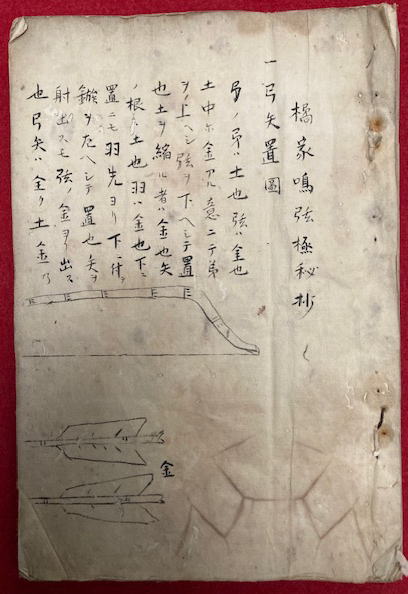 橘家鳴弦極秘抄
一弓矢置圖
弓ノ弟ハ土也弦ハ金也
土中ニ金アル意ニテ弟
ヲ上ヘシ弦ヲ下ヘシテ置
也土ヲ縮ル者ハ金也矢
ノ根ハ土也羽ハ金也下ニ
置ニモ羽先ヨリ下ニ付テ
鏃ヲ左ヘシテ置也矢ヲ
射出スモ弦ノ金ヨリ出ス
也弓矢ハ全ク土金
金